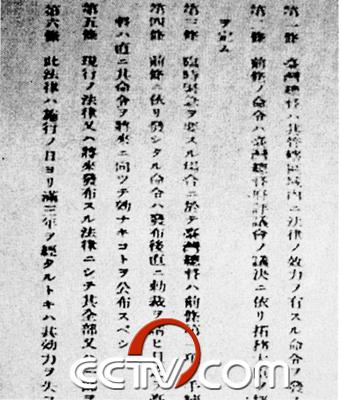 第一條 臺灣總督ハ其管轄區域内ニ法律ノ效力ノ有スル命令ヲ發ス
第二條 前條ノ命令ハ臺灣總督府評議會ノ議決ニ依リ拓務大臣
ヲ定ム
第三條 臨時緊急ヲ要スル場合ニ於テ臺灣總督ハ前條第一項ノ手續
第四條 前條ニ依リ發シタル命令ハ發布後直ニ勅裁ヲ請ヒ且
督ハ直ニ其命令ヲ將來ニ向ツテ效ナキコトヲ公布スベシ
第五條 現行ノ法律又ハ將來發布スル法律ニシテ其全部又ハ一部ヲ
第六條 此法律ハ施行ノ日ヨリ滿三年ヲ經タルトキハ其效力ヲ失フ
CCTV.com